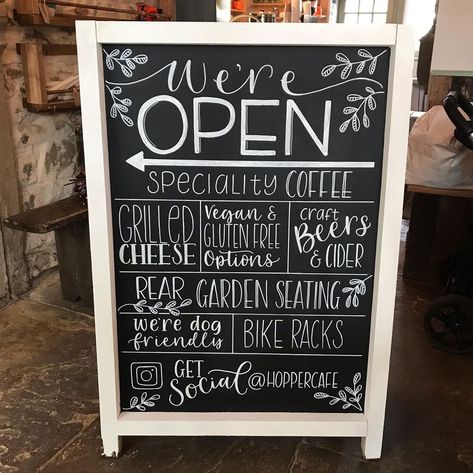 We're
OPEN
SPECIALITY COFFEE
GRILLED
CHEESE
Vegan &
GLUTEN FREE
Options
craft
Beers
& CIDER
REAR GARDEN SEATING
we're dog
friendly
BIKE RACKS
GET
Social @HOPPERCAFE